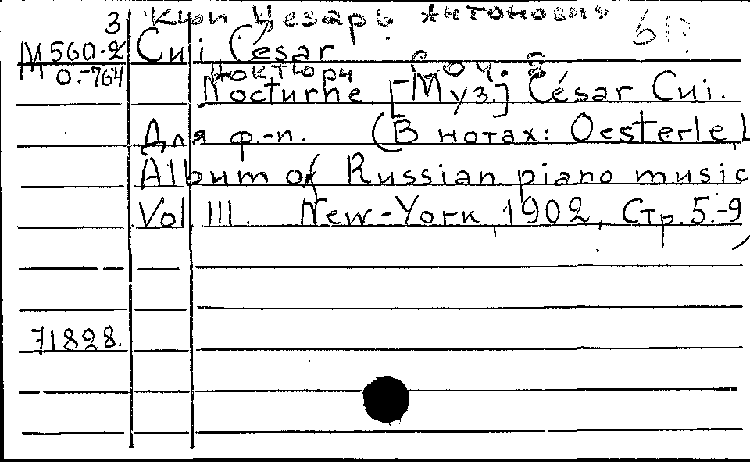 3 Кюи Цезарь Антонович
М 560-2 Cui César
0.-764 Ноктюрн Соч. 8
Nocturne [Муз.] César Cui.
Для ф.-п. (В нотах: Oesterle L
Album of Russian piano music
Vol III. New-York, 1902, Стр. 5.-9
71828.